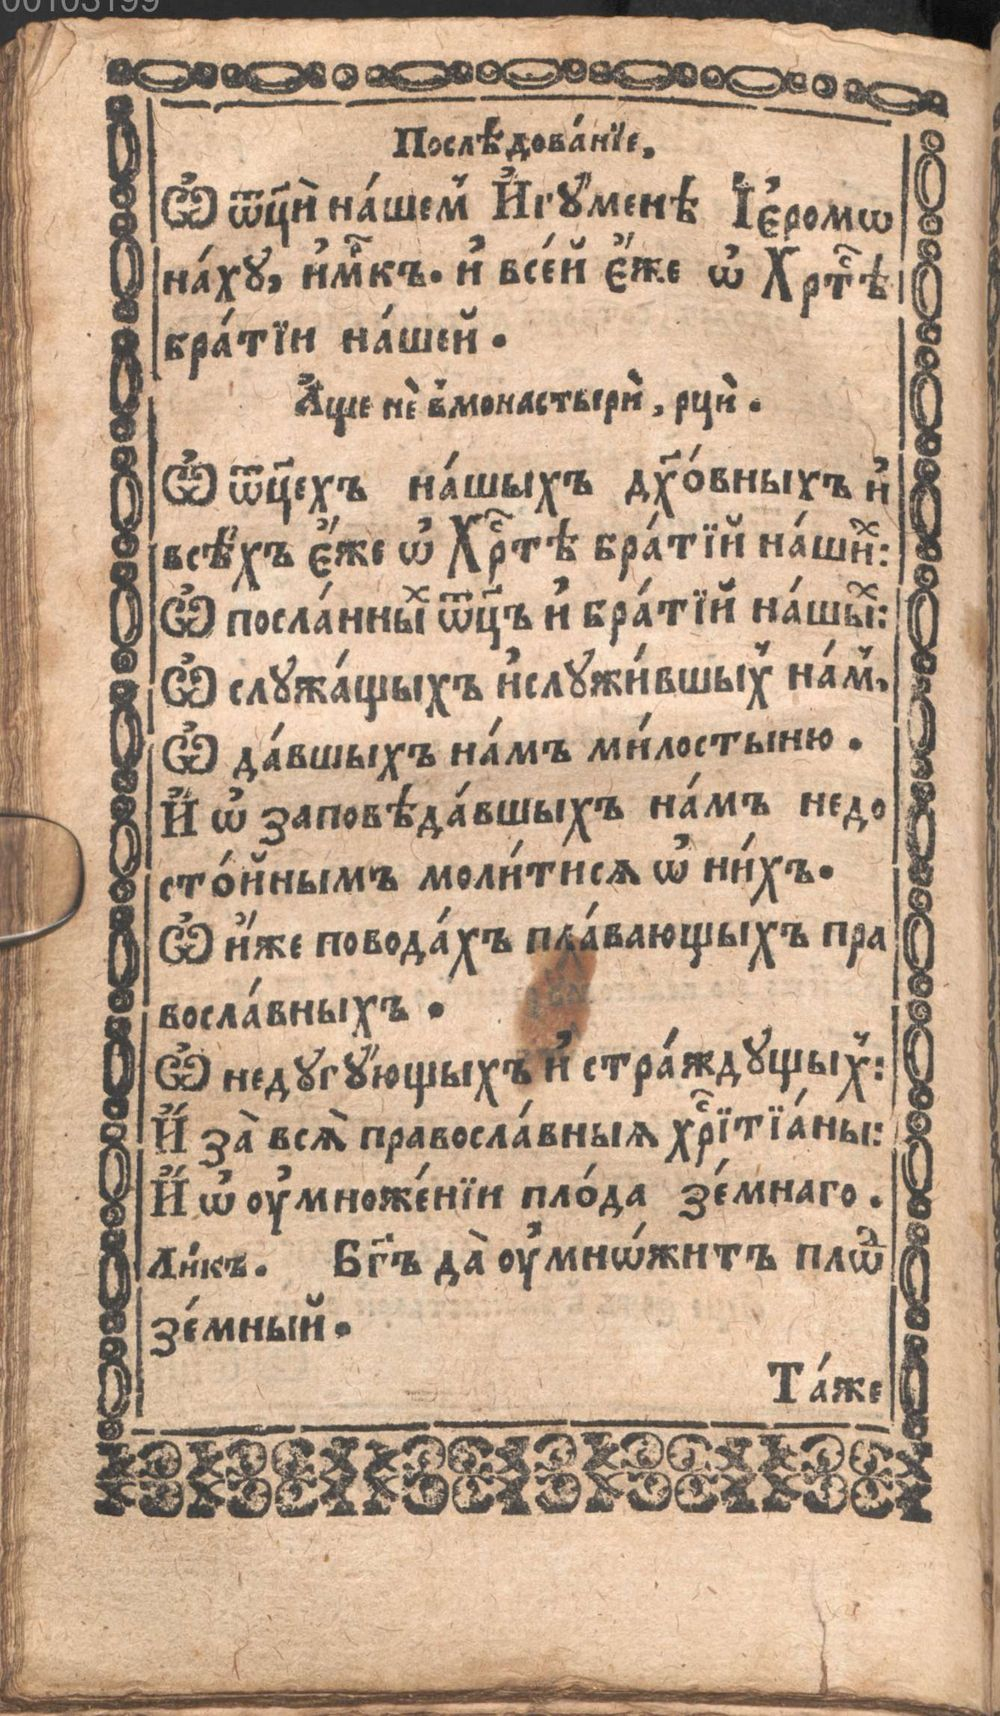 00103199
Послѣдова́нїе,
Ѽ ѿц҃ѝ на́шем̾ И҆гꙋ́менѣ І҆є҆ромѡ
на́хꙋ, и҆м҃къ. и҆ все́й є҆́же ѡ҆ Хрⷭ҇тѣ
бра́тїи на́шей.
А҆ще нѐ в̾монастырѝ, рцѝ.
Ѽ ѿц҃ехъ на́шыхъ дх҃о́вныхъ и҆
всѣ́хъ є҆́же ѡ҆ Хрⷭ҇тѣ бра́тїй на́шиⷯ:
Ѽ посла́нныⷯ ѿц҃ъ и҆ бра́тїй на́шыⷯ:
Ѽ слꙋжа́щыхъ и҆слꙋжи́вшых̾ на́м̾,
Ѽ да́вшыхъ на́мъ ми́лостыню.
И҆ ѡ҆ заповѣда́вшыхъ на́мъ недо
сто́йнымъ моли́тисѧ ѡ҆ ни́хъ.
Ѽ и҆́же повода́хъ пла́вающыхъ пра
восла́вныхъ.
Ѽ недꙋгꙋ́ющыхъ и҆ стра́ждꙋщых̾:
И҆ за̀ всѧ̀ правосла́вныѧ хрⷭ҇їтїа́ны:
И҆ ѡ҆ оу҆множе́нїи пло́да зе́мнаго.
Ли́къ. Бг҃ъ да̀ оу҆мнѡ́житъ плѡⷣ
зе́мный.
Та́же